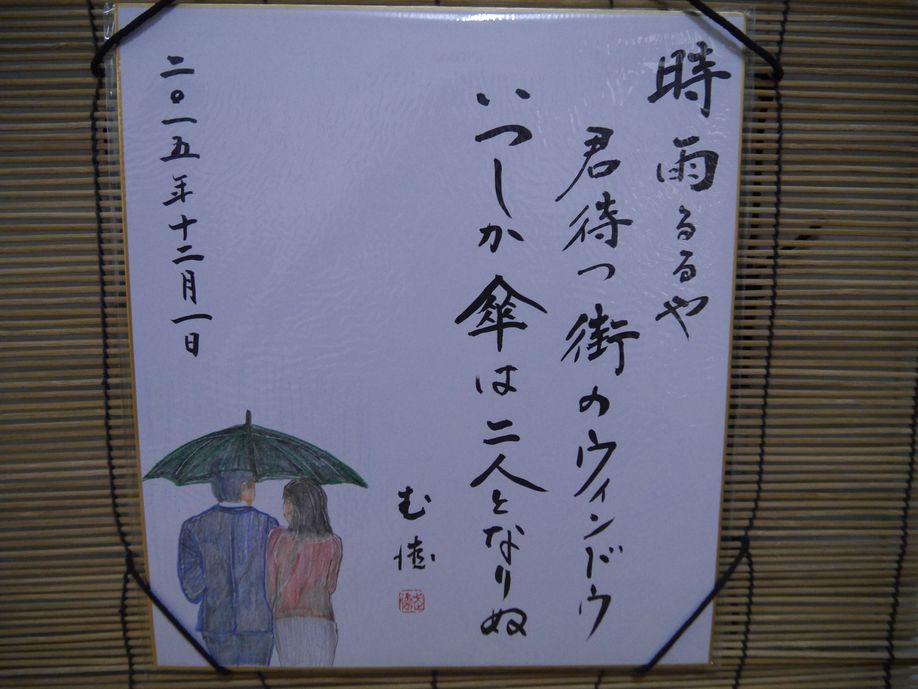 時雨るるや
君待つ街のウィンドウ
いつしか傘は二人となりぬ
む徳
二〇一五年十二月一日